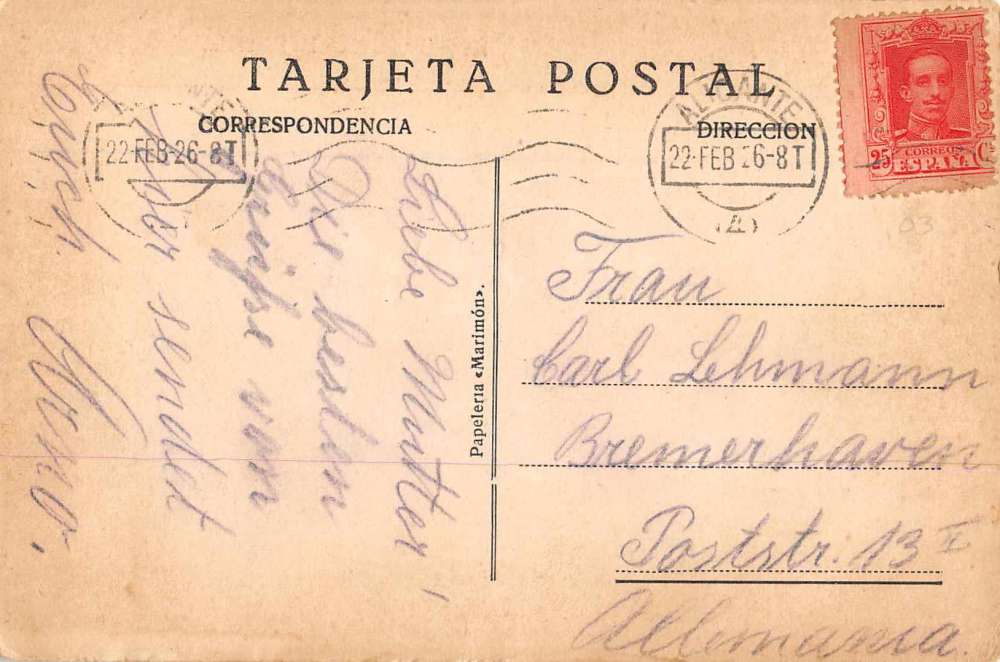 TARJETA POSTAL
CORRESPONDENCIA
DIRECCION
22·FEB·26-8T
ALICANTE
22·FEB 26-8T
25 Cs
CORREOS
ESPAÑA
Liebe Mutter!
Die besten
Grüsse von
hier sendet
Euch
Arno.
Papeleria «Marimón».
Frau
Carl Lehmann
Bremerhaven
Poststr. 13 I
Allemania.